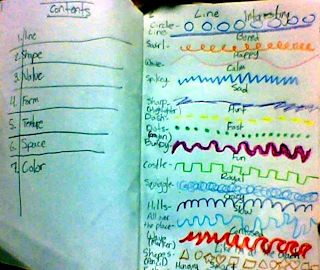 Contents
1. Line
2. Shape
3. Value
4. Form
5. Texture
6. Space
7. Color
Line
Interesting
Circle-
Line-
Bored
Swirl-
Happy
Wave-
Calm
Spikey
Sad
Sharp-
Hurt
Dash-
Fast
Dots-
Bumpy
Fun
Castle-
Royal
Squiggle-
Crazy
Hills-
Slow
All over
the place-
Confused
Wave
(Marker)
Shapes-
(Pencil)
Hungry